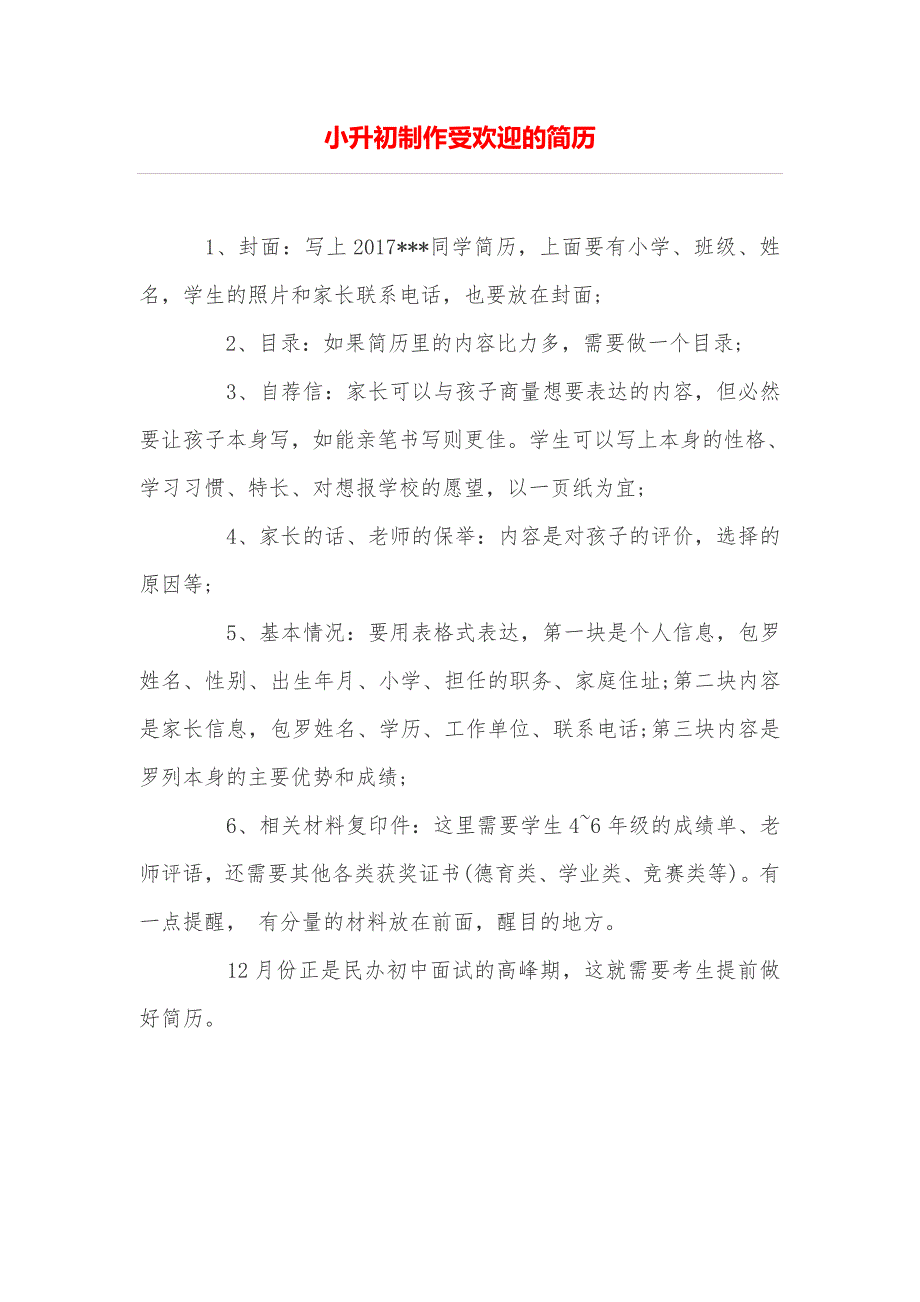 小升初制作受欢迎的简历
1、封面：写上2017***同学简历，上面要有小学、班级、姓
名，学生的照片和家长联系电话，也要放在封面;
2、目录：如果简历里的内容比力多，需要做一个目录;
3、自荐信：家长可以与孩子商量想要表达的内容，但必然
要让孩子本身写，如能亲笔书写则更佳。学生可以写上本身的性格、
学习习惯、特长、对想报学校的愿望，以一页纸为宜;
4、家长的话、老师的保举：内容是对孩子的评价，选择的
原因等;
5、基本情况：要用表格式表达，第一块是个人信息，包罗
姓名、性别、出生年月、小学、担任的职务、家庭住址;第二块内容
是家长信息，包罗姓名、学历、工作单位、联系电话;第三块内容是
罗列本身的主要优势和成绩;
6、相关材料复印件：这里需要学生4~6年级的成绩单、老
师评语，还需要其他各类获奖证书(德育类、学业类、竞赛类等)。有
一点提醒， 有分量的材料放在前面，醒目的地方。
12月份正是民办初中面试的高峰期，这就需要考生提前做
好简历。